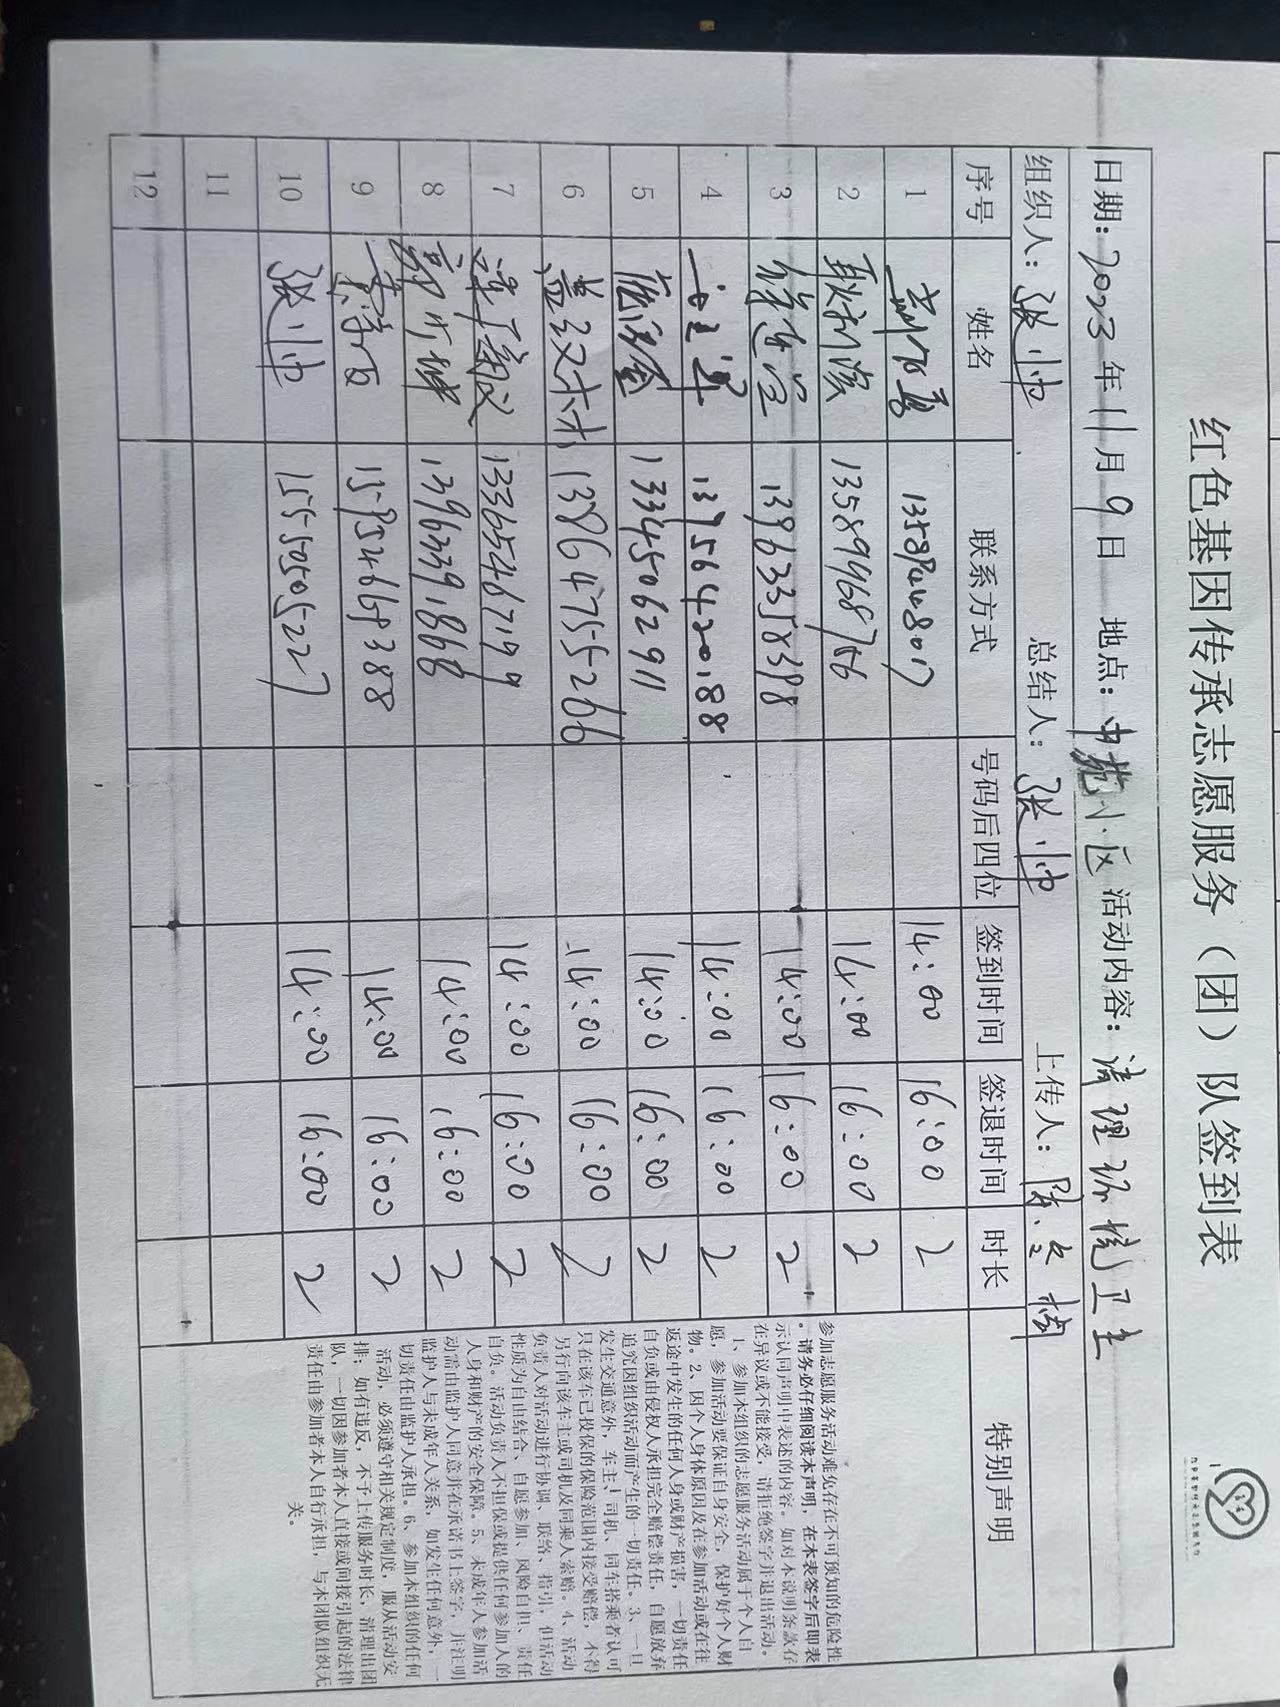 红色基因传承志愿服务（团）队签到表
日期：2023年11月9日 地点：中苑小区 活动内容：清理环境卫生
组织人：张帅 总结人：张帅 上传人：
序号 姓名 联系方式 号码后四位 签到时间 签退时间 时长 特别声明
1 14:00 16:00 2
2 耿利滨 13589968756 14:00 16:00 2
3 13963358398 14:00 16:00 2
4 13756420188 14:00 16:00 2
5 13345062911 14:00 16:00 2
6 盖汉木 13864755266 14:00 16:00 2
7 13365467199 14:00 16:00 2
8 郭 13963391868 14:00 16:00 2
9 15954665388 14:00 16:00 2
10 张帅 15550505227 14:00 16:00 2
11
12
参加志愿服务活动难免存在不可预知的危险性
。请务必仔细阅读本声明，在本表签字后即表
示认同声明中表述的内容。如对本说明条款存
在异议或不能接受，请拒绝签字并退出活动。
1、参加本组织的志愿服务活动属于个人自
愿，参加活动要保证自身安全，保护好个人财
物。2、因个人身体原因及在参加活动或在往
返途中发生的任何人身或财产损害，一切责任
自负或由侵权人承担完全赔偿责任，自愿放弃
追究因组织活动而产生的一切责任。3、一旦
发生交通意外，车主、司机、同车搭乘者认可
只在该车已投保的保险范围内接受赔偿，不得
另行向该车主或司机及同乘人索赔。4、活动
负责人对活动进行协调、联络、指引，但活动
性质为自由结合、自愿参加、风险自担、责任
自负。活动负责人不担保或提供任何参加人的
人身和财产的安全保障。5、未成年人参加活
动需由监护人同意并在承诺书上签字，并注明
监护人与未成年人关系，如发生任何意外，一
切责任由监护人承担。6、参加本组织的任何
活动，必须遵守相关规定制度，服从活动安
排；如有违反，不予上传服务时长，清理出团
队，一切因参加者本人直接或间接引起的法律
责任由参加者本人自行承担，与本团队组织无
关。